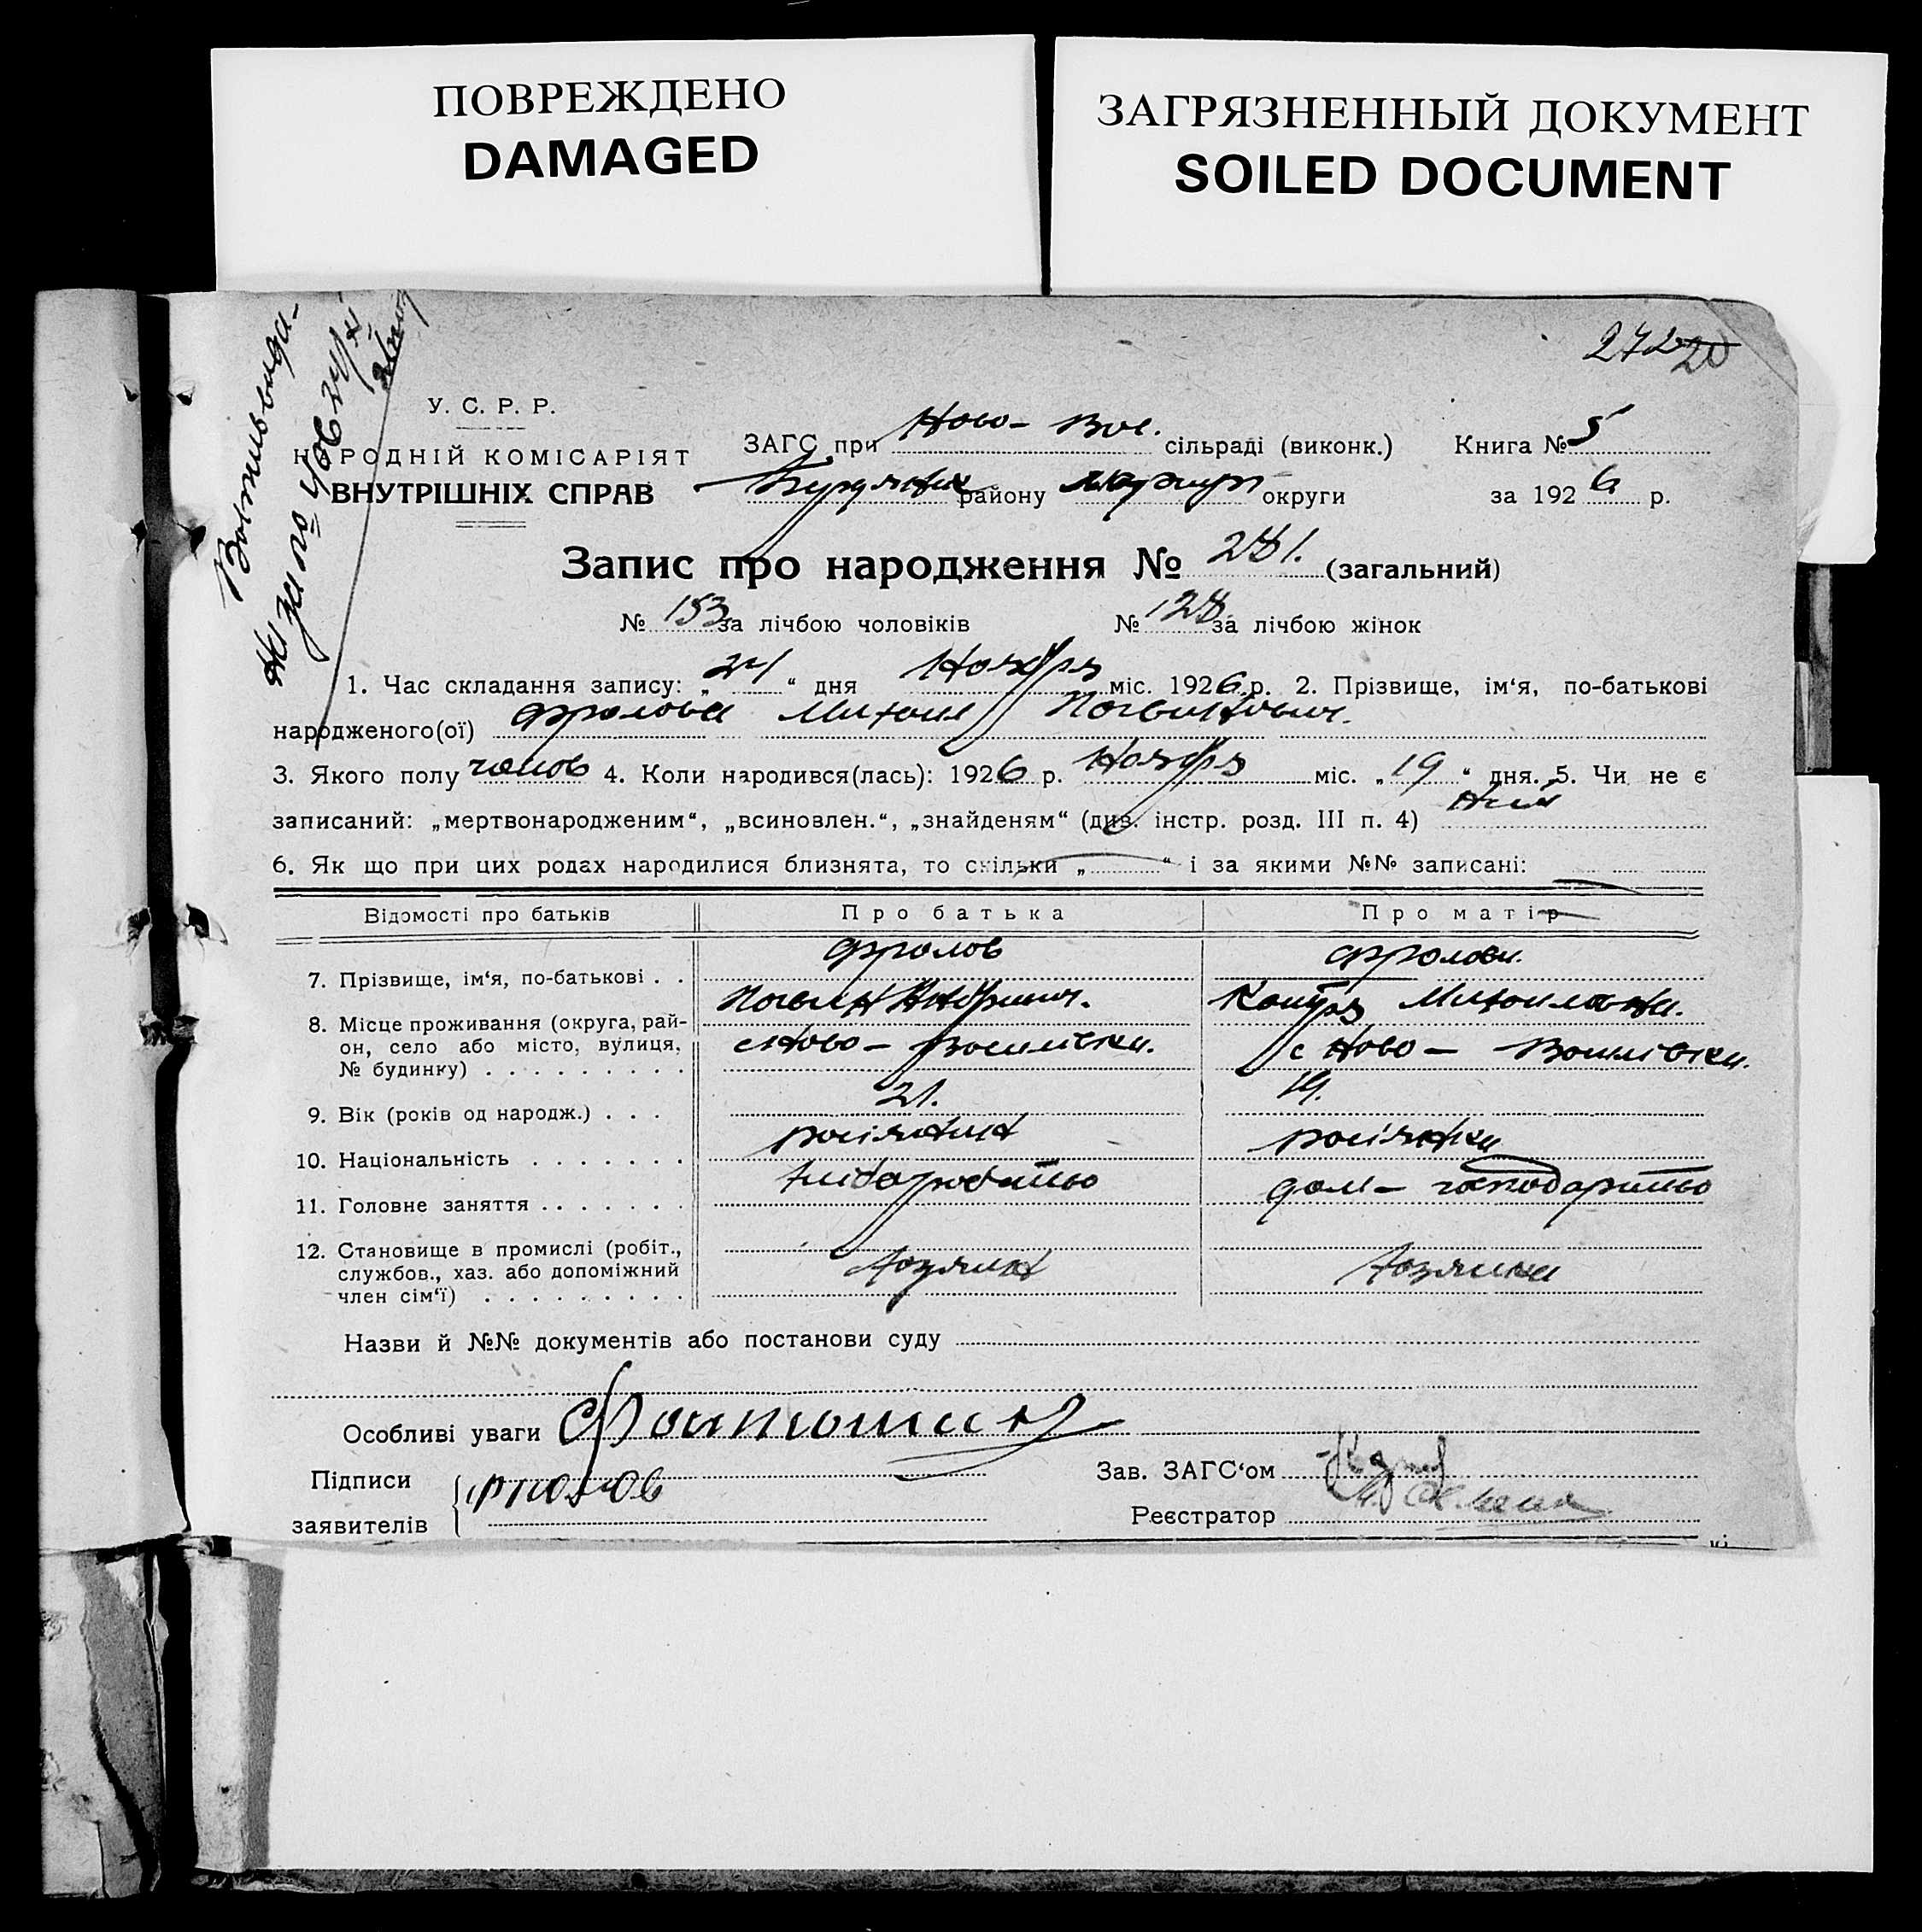 ПОВРЕЖДЕНО
DAMAGED
ЗАГРЯЗНЕННЫЙ ДОКУМЕНТ
SOILED DOCUMENT
У. С. Р. Р.
НАРОДНІЙ КОМІСАРІЯТ
ВНУТРІШНІХ СПРАВ
ЗАГС при Ново- Вас. сільраді (виконк.) Книга № 5
району округи за 1926 р.
Запис про народження № 281. (загальний)
№ 153 за лічбою чоловіків № 128 за лічбою жінок
1. Час складання запису: „ 21 “ дня Ноября міс. 1926 р. 2. Прізвище, ім'я, по-батькові
народженого(ої) Фролов Михаил
3. Якого полу чолов 4. Коли народився(лась): 1926 р. Ноября міс. „ 19 “ дня. 5. Чи не є
записаний: „мертвонародженим“, „всиновлен.“, „знайденям“ (див. інстр. розд. III п. 4)
6. Як що при цих родах народилися близнята, то скільки „ “ і за якими №№ записані:
Відомості про батьків Про батька Про матір
Фролов Фролова.
7. Прізвище, ім‘я, по-батькові . .
Михаиловна.
8. Місце проживання (округа, рай-
он, село або місто, вулиця,
№ будинку) . . . . . . . . .
с Ново- Василівка. с Ново- Василівка.
9. Вік (років од народж.) . . . 21. 19.
10. Національність . . . . . . . росіянин росіянка
11. Головне заняття . . . . . . . хліборобство дом- господарство
12. Становище в промислі (робіт.,
службов., хаз. або допоміжний
член сім‘ї) . . . . . . . . .
хозяин хозяйка
Назви й №№ документів або постанови суду
Особливі уваги
Підписи
заявителів
Фролов
Зав. ЗАГС‘ом
Реєстратор